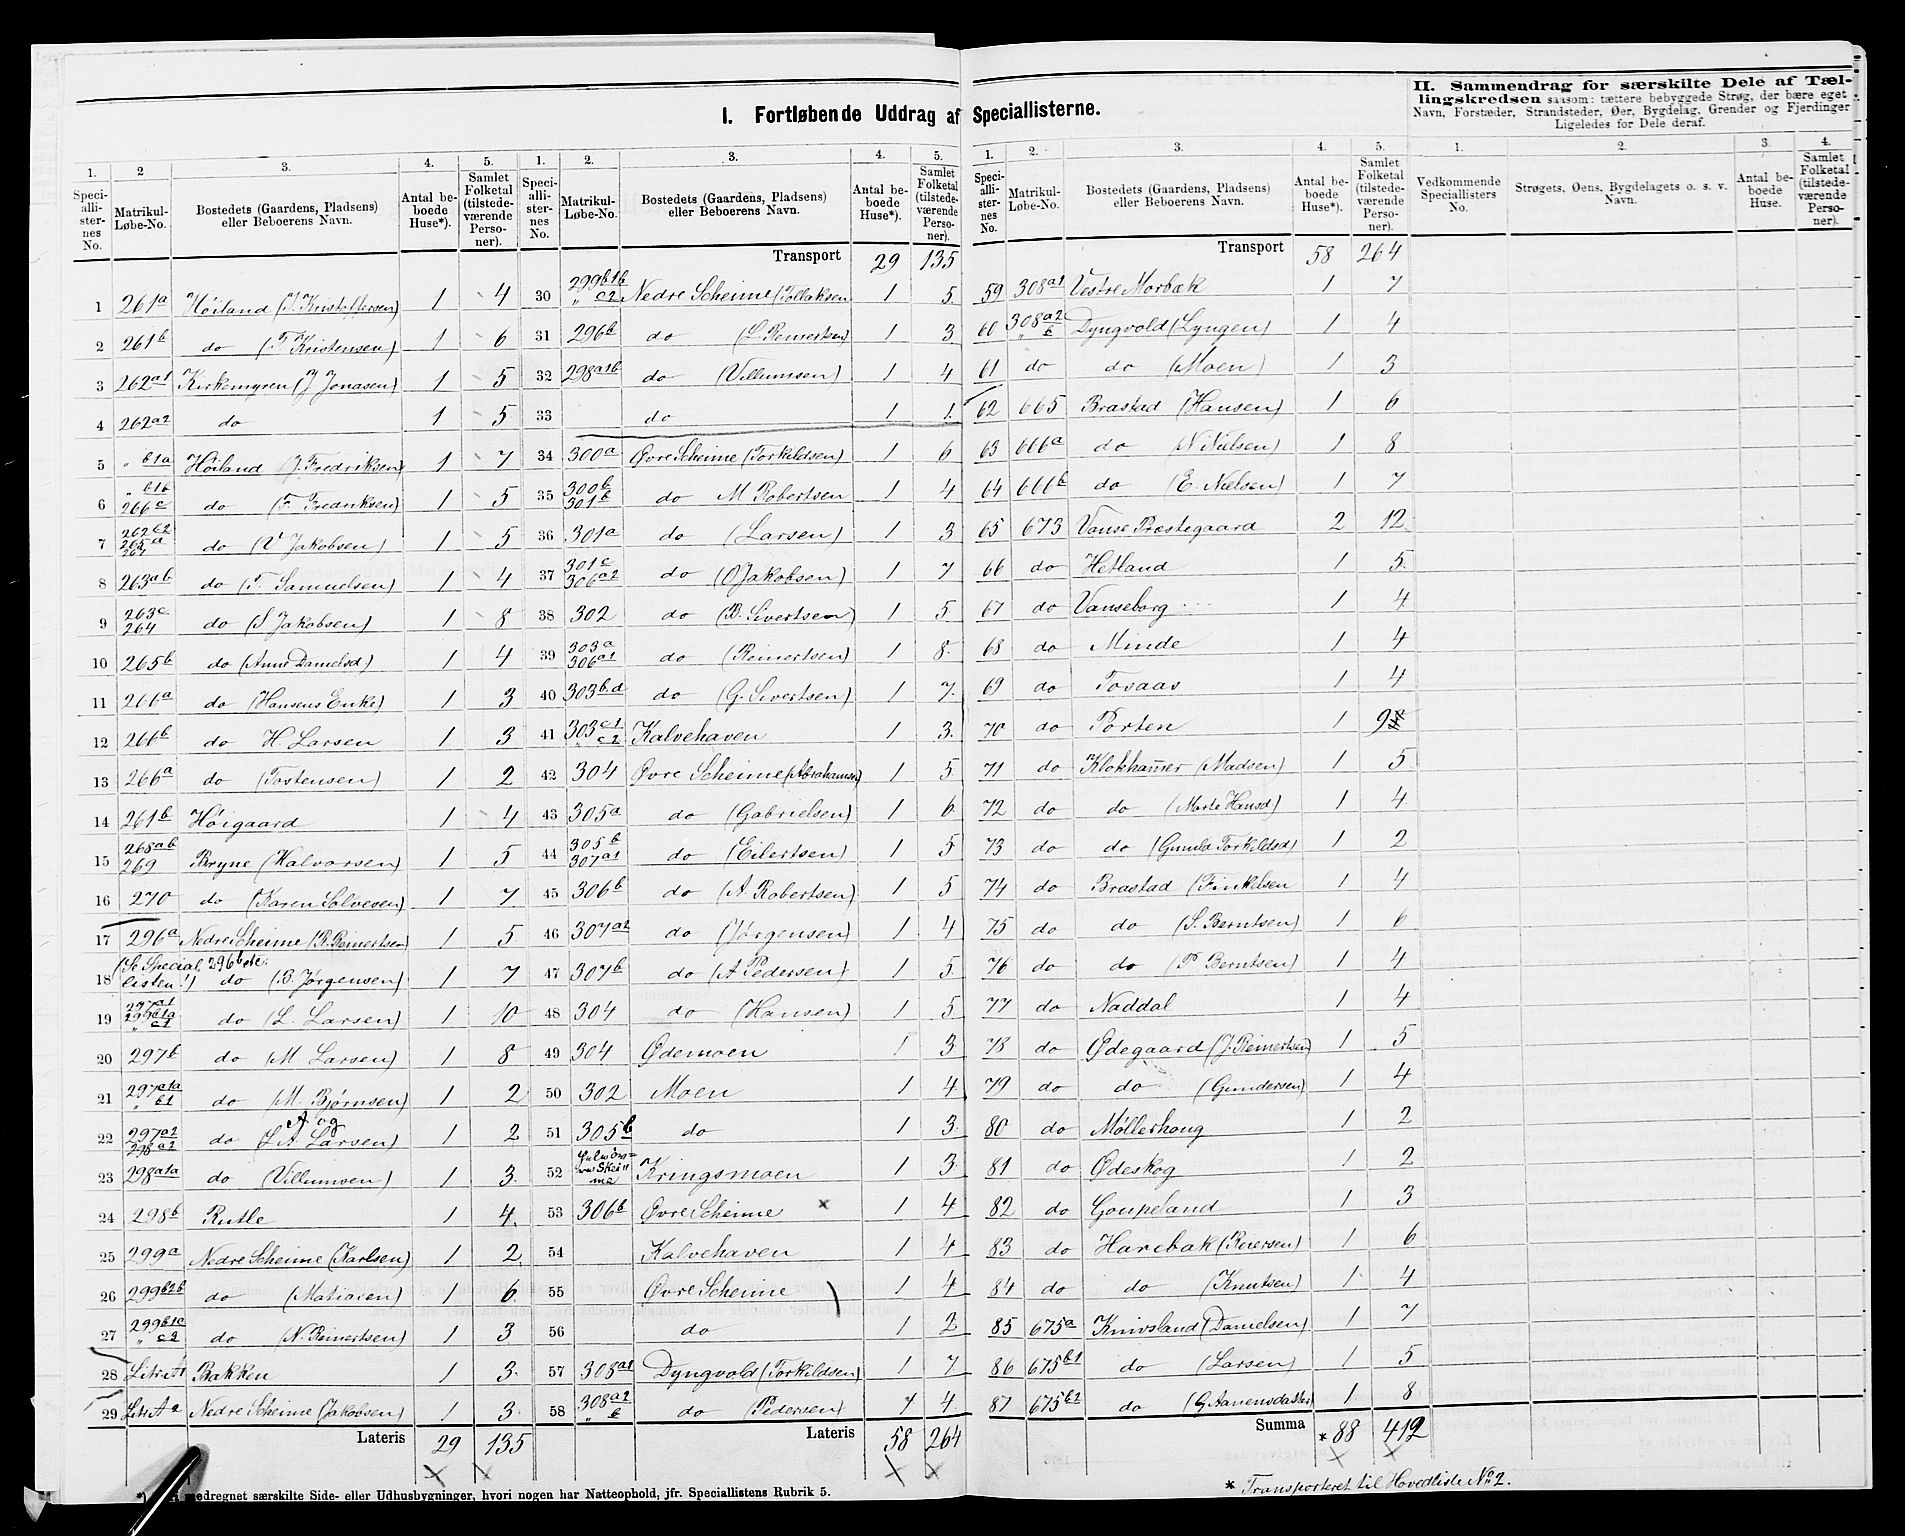 I. Fortløbende Uddrag af Speciallisterne.
II. Sammendrag for særskilte Dele af Tællingskredsen saasom: tættere bebyggede Strøg, der bære eget
Navn, Forstæder, Strandsteder, Øer, Bygdelag, Grender og Fjerdinger
Ligeledes for Dele deraf.
1. 2 3. 4. 5.
Speciallisternes No. Matrikul-Løbe-No. Bostedets (Gaardens, Pladsens) eller Beboerens Navn. Antal beboede Huse*). Samlet Folketal (tilstedeværende Personer).
1 261a Høiland (J. Kristoffersen) 1 4
2 261b do (T. Kristensen) 1 6
3 262a1 Kirkemyren (J Jonasen) 1 5
4 262a2 do 1 5
5 " b1a Høiland (J. Fredriksen) 1 7
6 " b1b 266c do (F. Fredriksen) 1 5
7 262b2 265a 267 do (V Jakobsen) 1 5
8 263ab do (T. Samuelsen) 1 4
9 263c 264 do (S Jakobsen) 1 8
10 265b do (Anne Danielsd) 1 4
11 266a do (Hansens Enke) 1 3
12 266b do H. Larsen 1 3
13 266a do (Tostensen) 1 2
14 261b Høigaard 1 4
15 268ab 269 Bryne (Halvorsen) 1 5
16 270 do (Karen Solvesen) 1 7
17 296a Nedre Scheime (R. Reinertsen 1 5
18 (Se Speciallisten!) 296b etc. do (B. Jørgensen) 1 7
19 297a1 299b1a " c1 do (L. Larsen) 1 10
20 297b do (M. Larsen) 1 8
21 297a1a " b1 do (M. Bjørnsen) 1 2
22 297a2 298a2 do (L A. Larsen) A og 1 2
23 298a1a do (Villumsen) 1 3
24 298b Rutle 1 4
25 299a Nedre Scheime (Karlsen) 1 2
26 299b2b do (Matiasen) 1 6
27 299b1c " c2 do (N. Reinertsen) 1 3
28 Litr. A1 Bakken 1 3
29 Litr. A2 Nedre Scheime (Jakobsen) 1 3
Lateris 29 135
1. 2. 3. 4. 5.
Speciallisternes No. Matrikul-Løbe-No. Bostedets (Gaardens, Pladsens) eller Beboerens Navn. Antal beboede Huse*). Samlet Folketal (tilstedeværende Personer).
Transport 29 135
30 299b1b " c2 Nedre Scheime (Tollaksen 1 5
31 296b do (L. Reinertsen) 1 3
32 298a1b do (Villumsen) 1 4
33 do 1 1
34 300a Øvre Scheime (Torkildsen) 1 6
35 300b 301b do M Robertsen 1 4
36 301a do (Larsen) 1 3
37 301c 306a2 do (O Jakobsen) 1 7
38 302 do (B. Sivertsen) 1 5
39 303a 306a1 do (Reinertsen) 1 8
40 303b.d do (G. Sivertsen) 1 7
41 303c1 " c2 Kalvehaven 1 3
42 304 Øvre Scheime (Abrahamsen) 1 5
43 305a do (Gabrielsen) 1 6
44 305b 307a1 do (Eilertsen) 1 5
45 306b do (A. Robertsen) 1 5
46 307a2 do (Jørgensen) 1 4
47 307b do (A Pedersen) 1 5
48 304 do (Hansen) 1 5
49 304 Ødemoen 1 3
50 302 Moen 1 4
51 305b do 1 3
52 Kringsmoen 1 3
53 306b Øvre Scheime x 1 4
54 Kalvehaven 1 4
55 Øvre Scheime 1 4
56 do 1 2
57 308a1 Dyngvold (Torkildsen) 1 7
58 308a2 " b do (Pedersen) 1 4
Lateris 58 264
1. 2. 3. 4. 5.
Speciallisternes No. Matrikul-Løbe-No. Bostedets (Gaardens, Pladsens) eller Beboerens Navn. Antal beboede Huse*). Samlet Folketal (tilstedeværende Personer).
Transport 58 264
59 308a1 Vestre Morbæk 1 7
60 308a2 " b Dyngvold (Lyngen) 1 4
61 do do (Moen) 1 3
62 665 Brastad (Hansen) 1 6
63 666a do (N Nielsen) 1 8
64 666b do (E. Nielsen) 1 7
65 673 Vanse Præstegaard 2 12
66 do Hetland 1 5
67 do Vanseborg 1 4
68 do Minde 1 4
69 do Tosaas 1 4
70 do Porten 1 9
71 do Klokhammer (Madsen) 1 5
72 do do (Marte Hansd) 1 4
73 do do (Gunild Torkildsd) 1 2
74 do Brastad (Finkelsen 1 4
75 do do (S. Berntsen) 1 6
76 do do (P. Berntsen) 1 4
77 do Naddal 1 4
78 do Ødegaard (J. Reinertsen) 1 5
79 do do (Gundersen) 1 4
80 do Møllerhoug 1 2
81 do Ødeskog 1 2
82 do Goupeland 1 3
83 do Harebak (Reiersen) 1 6
84 do do (Knutsen) 1 4
85 675a Knivsland (Danielsen) 1 7
86 675b1 do (Larsen) 1 5
87 675b2 do (G Aanensdatter) 1 8
Summa * 88 412
1. 2. 3. 4.
Vedkommende Speciallisters No. Strøgets, Øens, Bygdelagets o. s. v. Navn. Antal beboede Huse. Samlet Folketal (tilstedeværende Personer).
medregnet særskilte Side- eller Udhusbygninger, hvori nogen har Natteophold, jfr. Speciallistens Rubrik 5.
* Transporteret til Hovedliste No 2.